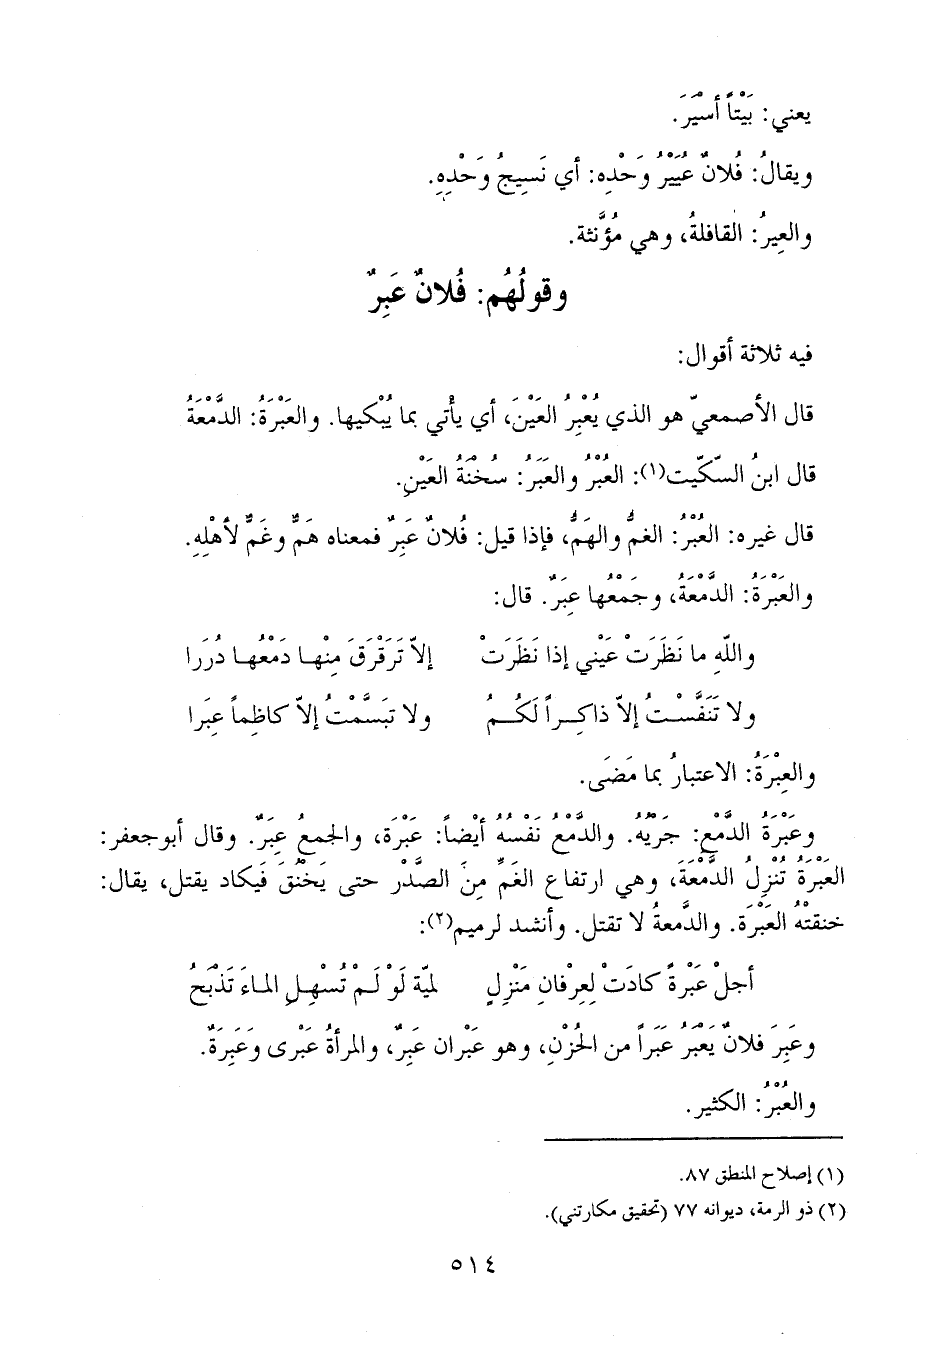 يعني: بَيْتاً أَسْيَرَ.
ويقالُ: فُلانٌ عُيَيْرُ وَحْدِه: أي نَسِيجُ وَحْدِهِ.
والعِيرُ: القافلةُ، وهي مُؤَنَّثة.
وقولُهُم: فُلانٌ عَبِرٌ
فيه ثلاثة أقوال:
قال الأصمعيّ هو الذي يُعْبِرُ العَيْنَ، أي يأْتي بما يُبْكيها. والعَبْرَةُ: الدَّمْعَةُ
قال ابنُ السّكّيت(١): العُبْرُ والعَبَرُ: سُخْنَةُ العَيْنِ.
قال غيره: العُبْرُ: الغمُّ والهَمُّ، فإذا قيل: فُلانٌ عَبِرٌ فمعناه هَمٌّ وغَمٌّ لأَهْلِهِ.
والعَبْرَةُ: الدَّمْعَةُ، وجَمْعُها عِبَرٌ. قال:
واللّهِ ما نَظَرَتْ عَيْني إذا نَظَرَتْ إلاّ تَرَقْرَقَ مِنْها دَمْعُها دُرَرا
ولا تَنَفَّسْتُ إلاّ ذاكِراً لَكُمُ ولا تبَسَّمْتُ إلاّ كاظِماً عِبَرا
والعِبْرَةُ: الاعتبارُ بما مَضَى.
وعَبْرَةُ الدَّمْعِ: جَرْيُهُ. والدَّمْعُ نَفْسُهُ أيضاً: عَبْرَة، والجمعُ عِبَرٌ. وقال أبوجعفر:
العَبْرَةُ تُنْزِلُ الدَّمْعَةَ، وهي ارتفاع الغَمِّ مِنَ الصَّدْر حتى يَخْنُقَ فَيكاد يقتل، يقال:
خنقتْهُ العَبْرَة. والدَّمعةُ لا تقتل. وأنشد لرميم(٢):
أجلْ عَبْرَةً كادَتْ لِعِرْفانِ مَنْزِلٍ لميّة لَوْ لَمْ تُسْهِلِ الماءَ تَذْبَحُ
وعَبِرَ فلانٌ يَعْبَرُ عَبَراً من الحُزْنِ، وهو عَبْران عَبِرٌ، والمرأةُ عَبْرى وعَبِرَةٌ.
والعُبْرُ: الكثير.
(١) إصلاح المنطق ٨٧.
(٢) ذو الرمة، ديوانه ٧٧ (تحقيق مكارتني).
٥١٤